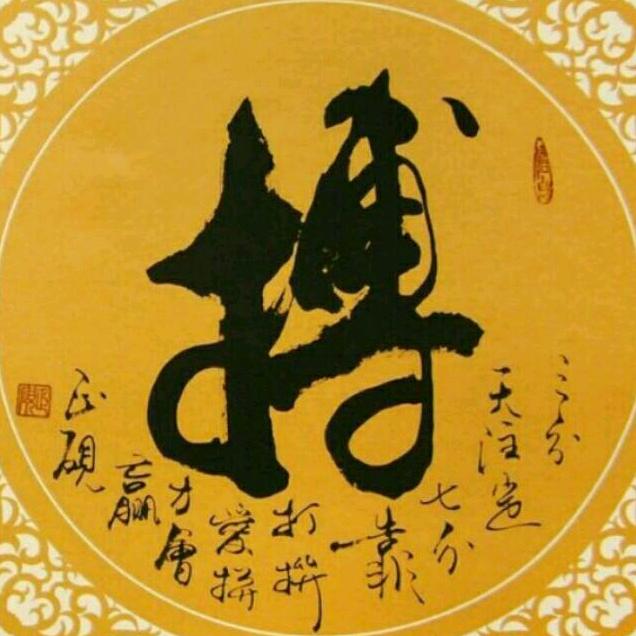 搏
三分
天注定
七分
靠
打拼
愛拼
才會
贏
正硯